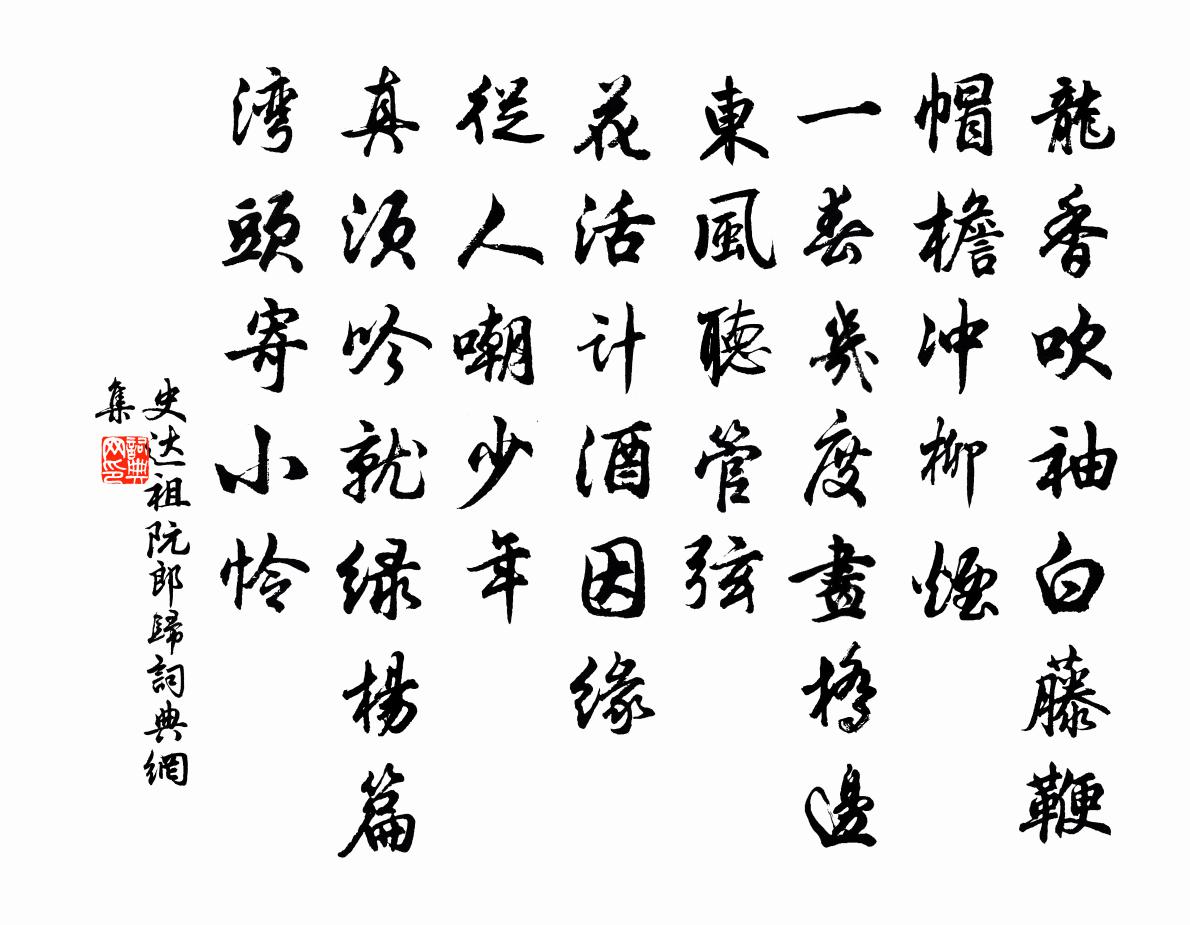 龍香吹袖白藤鞭
帽檐冲柳煙
一春幾度畫橋邊
東風聽管弦
花活计酒因缘
從人嘲少年
真须吟就绿楊篇
湾頭寄小怜
史达祖阮郎歸詞典網
集
詞典网印